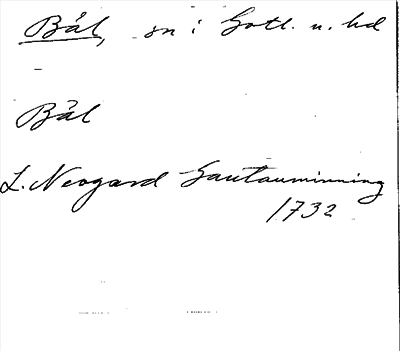 Bäl, sn i Gotl. n. hd
Bäl
L. Neogard Gautauminning
1732